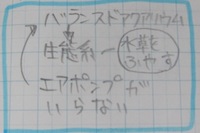 バランスドアクアリウム
生態系ー水草をふやす
エアポンプが
いらない